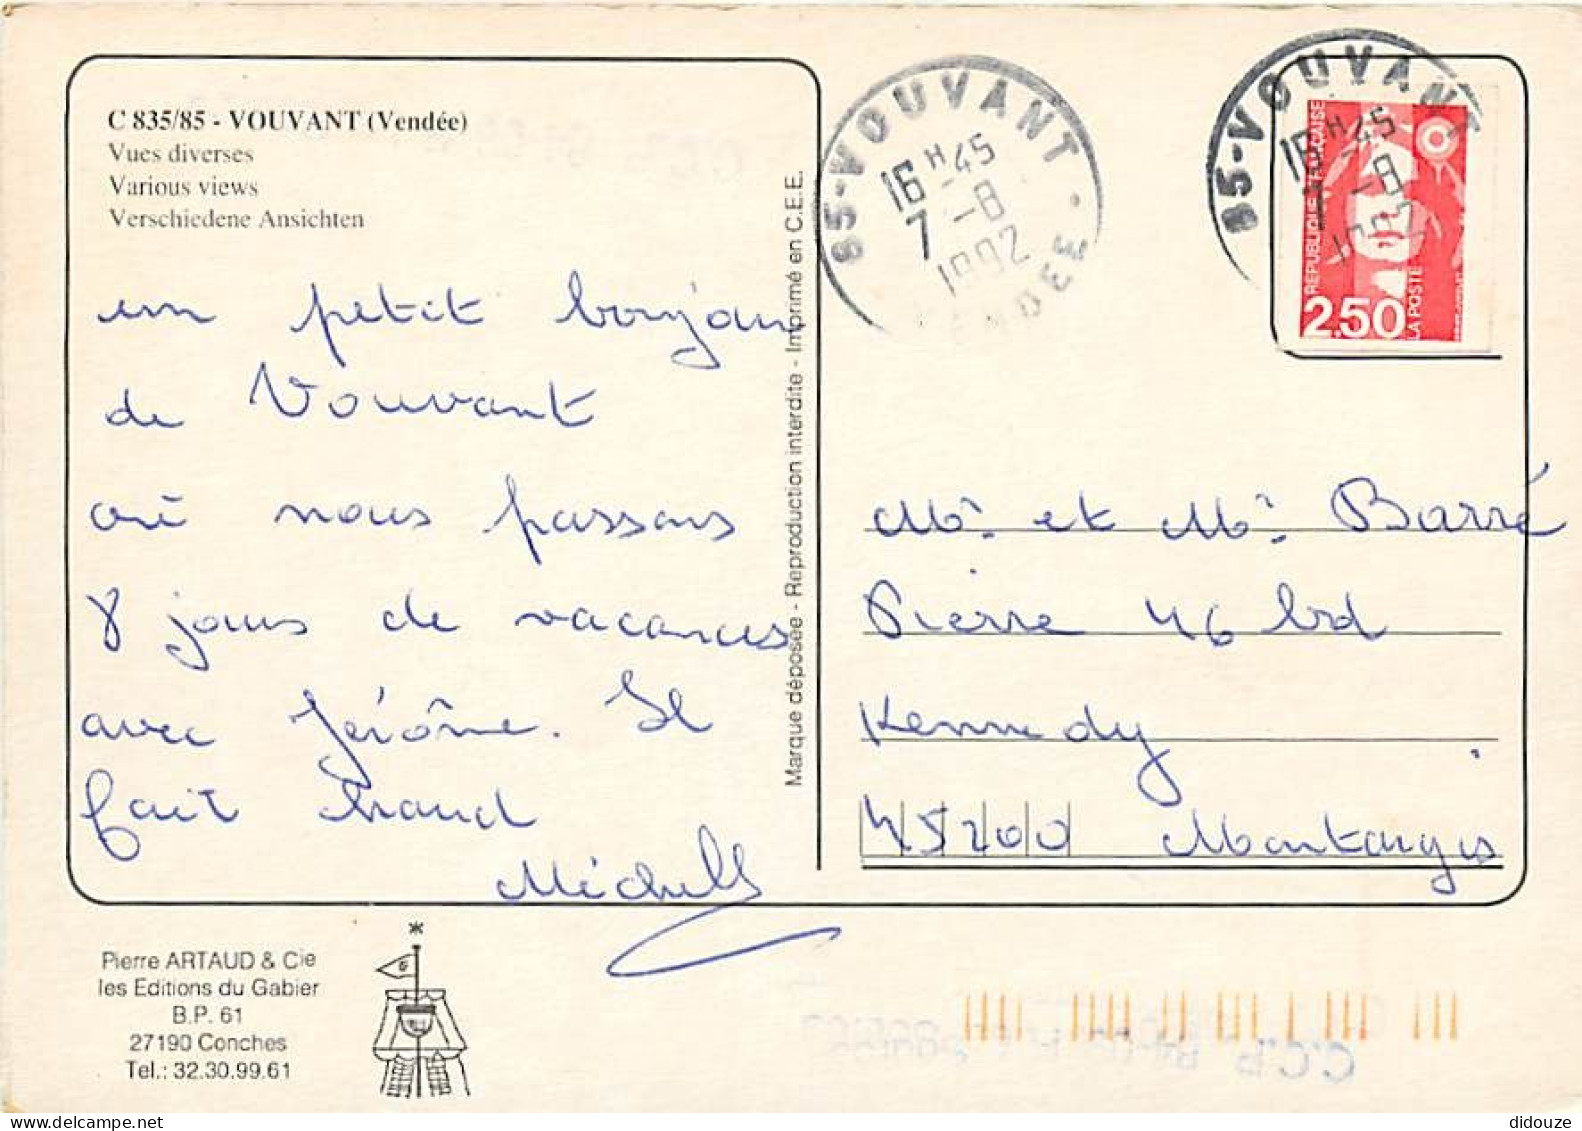 C 835/85 - VOUVANT (Vendée)
Vues diverses
Various views
Verschiedene Ansichten
un petit bonjour
de Vouvant
où nous passons
8 jours de vacances
avec Jérôme. Il
fait chaud
Michelle
Marque déposée - Reproduction interdite - Imprimé en C.E.E.
85-VOUVANT
16H45
7 -8
1992
VENDEE
85-VOUVANT
16H45
7 -8
1992
REPUBLIQUE FRANÇAISE
2,50
LA POSTE
Mr. et Mr. Barré
Pierre 46 bd
Kennedy
45200 Montargis
Pierre ARTAUD & Cie
les Editions du Gabier
B.P. 61
27190 Conches
Tel.: 32.30.99.61
didouze